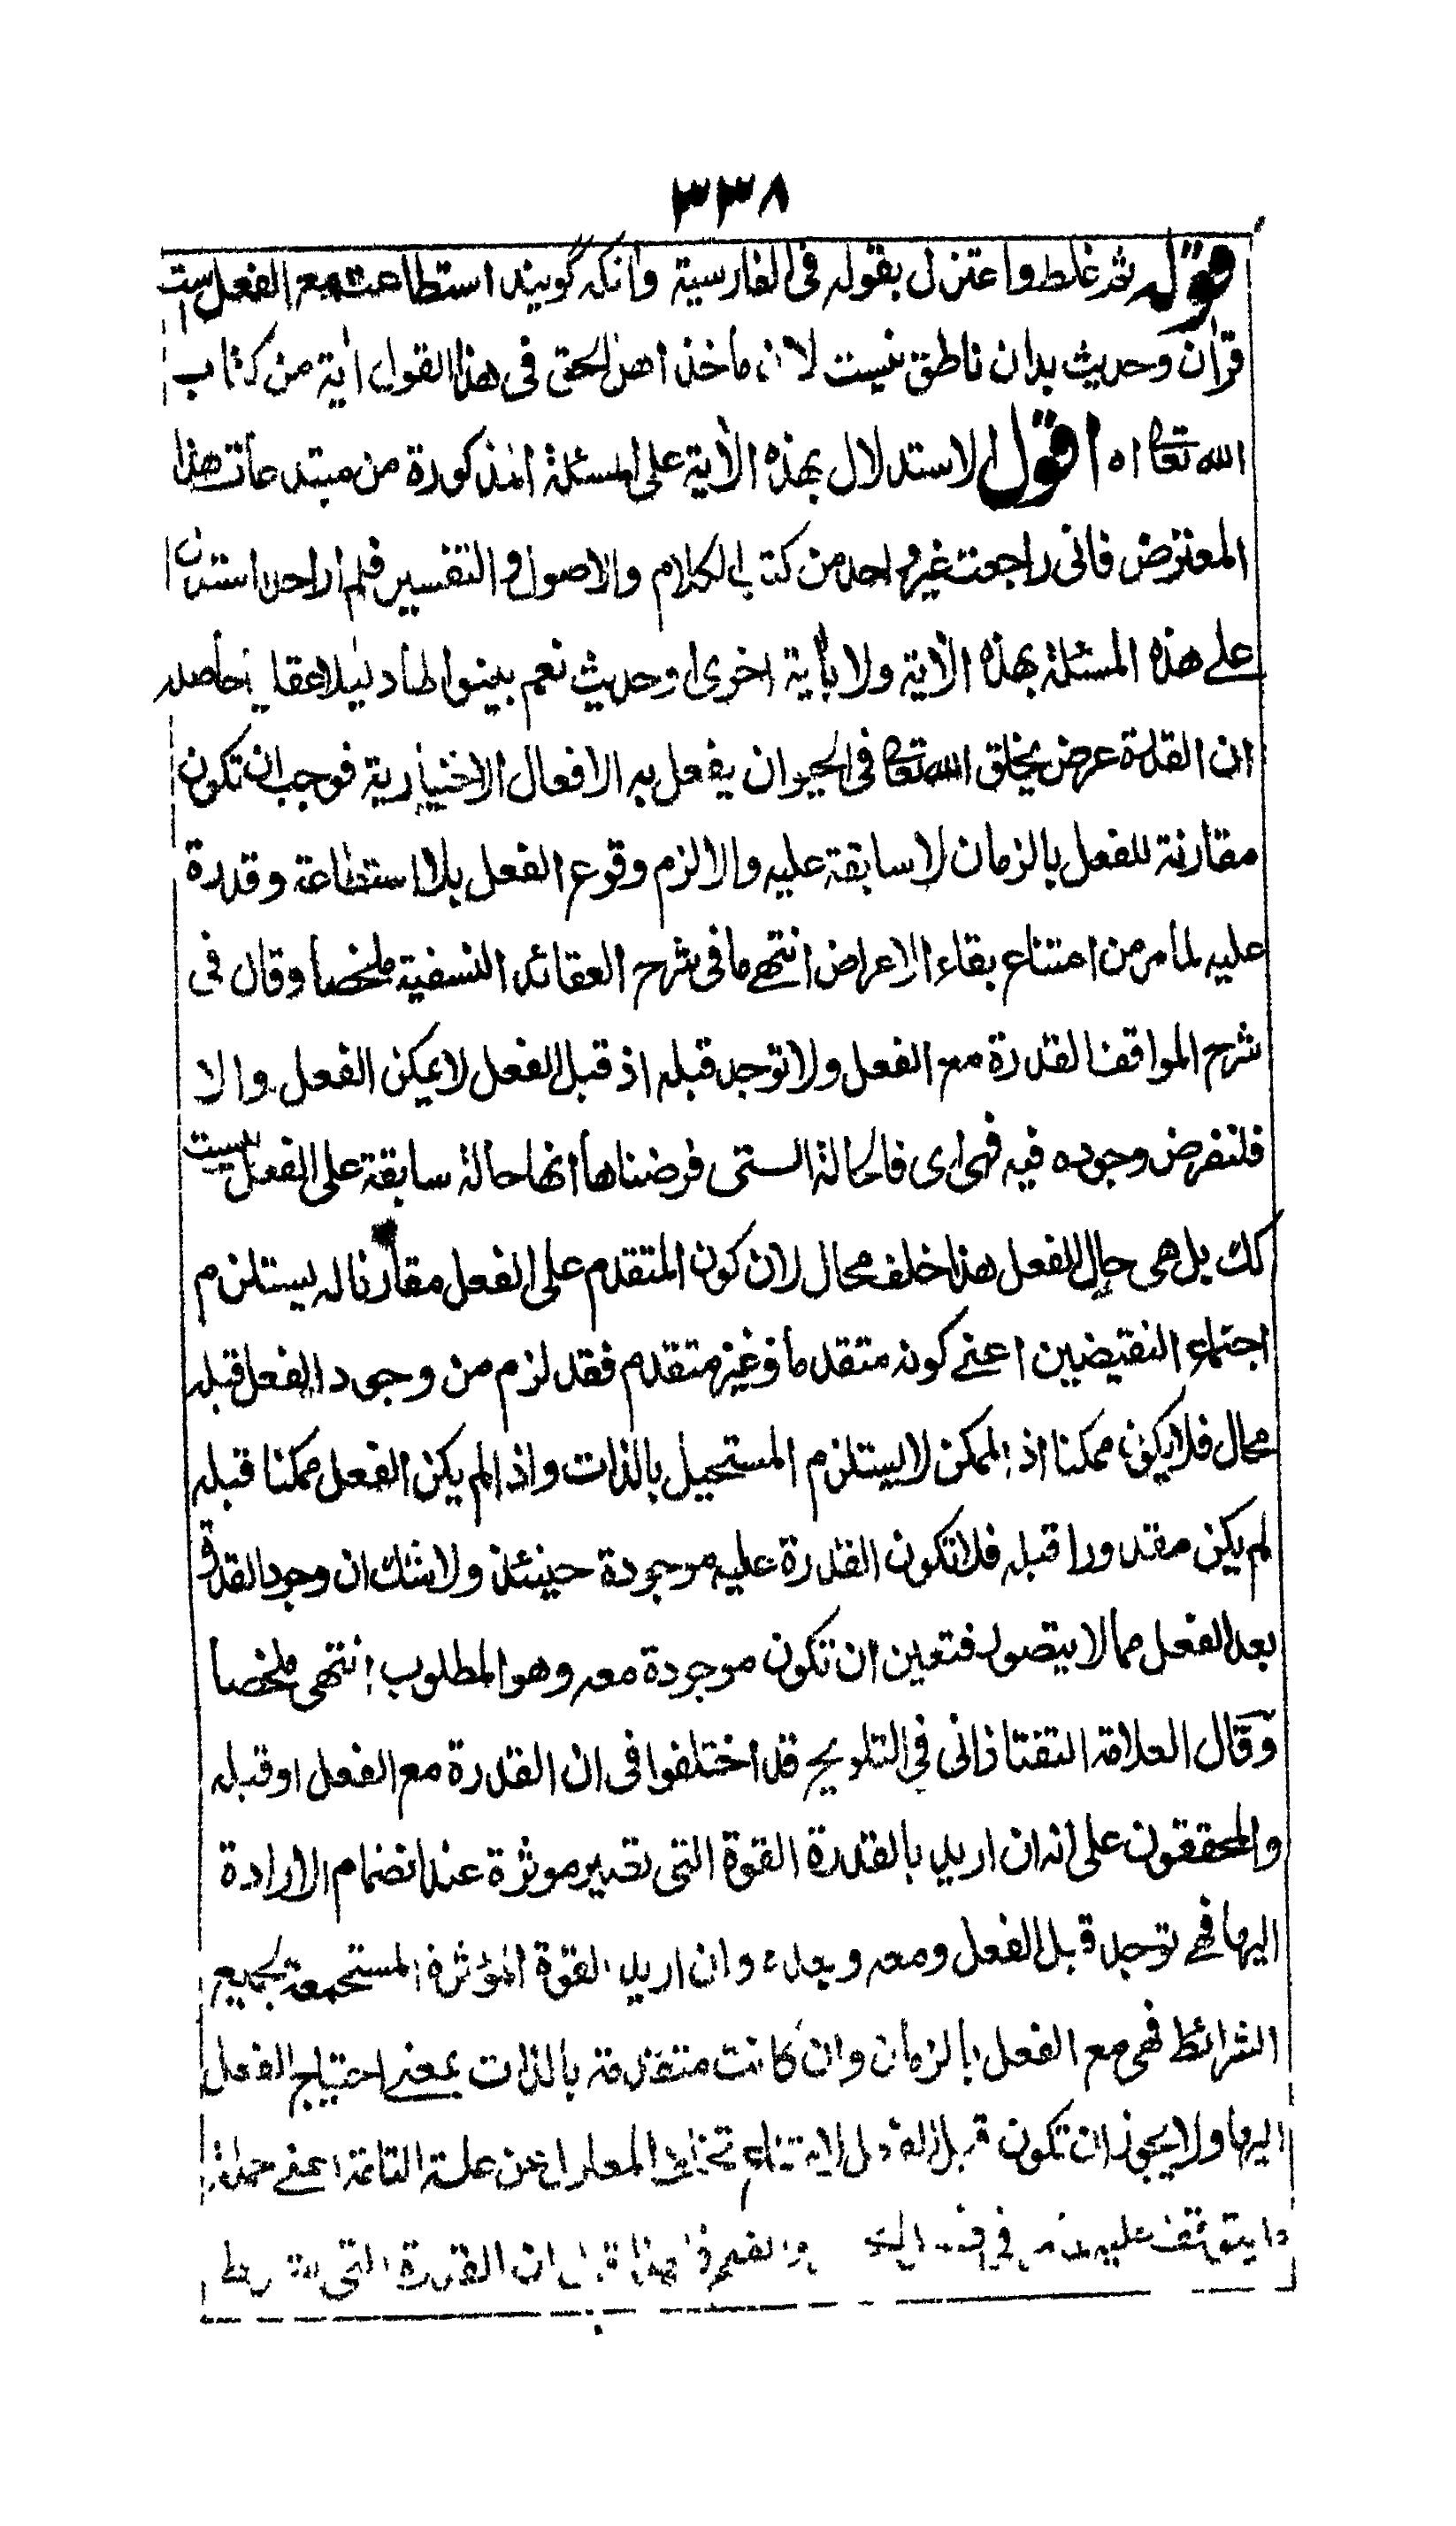 ٣٣٨
قوله ثم غلط واعتزل بقوله فی الفارسیة وانکه گویند استطاعت مع الفعل ست
قرآن وحدیث بدان ناطق نیست لان ماخذ اهل الحق فی هذا القول اٰیة من کتاب
الله تعا اه اقول الاستدلال بهذه الاٰیة علی المسئلة المذکورة من مبتدعات هذا
المعترض فانی راجعت غیر واحد من کتب الکلام والاصول والتفسیر فلم ار احدا استدل
علی هذه المسئلة بهذه الاٰیة ولا باٰیة اخری او حدیث نعم بینوا لها دلیلا عقلیا حاصله
ان القدرة عرض یخلق الله تعا فی الحیوان یفعل به الافعال الاختیاریة فوجب ان تکون
مقارنة للفعل بالزمان لا سابقة علیه والا لزم وقوع الفعل بلا استطاعة وقدرة
علیه لما مر من امتناع بقاء الاعراض انتهی ما فی شرح العقائد النسفیة ملخصا وقال فی
شرح المواقف القدرة مع الفعل ولا توجد قبله اذ قبل الفعل لا یمکن الفعل والا
فلنفرض وجوده فیه فهی ای فالحالة التی فرضناها انها حالة سابقة علی الفعل لیست
کک بل هی حال الفعل هذا خلف محال لان کون المتقدم علی الفعل مقارنا له یستلزم
اجتماع النقیضین اعنی کونه متقدما وغیر متقدم فقد لزم من وجود الفعل قبله
محال فلا یکون ممکنا اذ الممکن لا یستلزم المستحیل بالذات واذا لم یکن الفعل ممکنا قبله
لم یکن مقدورا قبله فلا تکون القدرة علیه موجودة حینئذ ولا شک ان وجود القدرة
بعد الفعل مما لا یتصور فتعین ان تکون موجودة معه وهو المطلوب انتهی ملخصا
وقال العلامة التفتازانی فی التلویح قد اختلفوا فی ان القدرة مع الفعل او قبله
والمحققون علی انه ان ارید بالقدرة القوة التی تصیر موثرة عند انضمام الارادة
الیها فهی توجد قبل الفعل ومعه وبعده وان ارید القوة المؤثرة المستجمعة لجمیع
الشرائط فهی مع الفعل بالزمان وان کانت متقدمة بالذات بمعنی احتیاج الفعل
الیها ولا یجوز ان تکون قبل الفعل لامتناع تخلف المعلول عن علته التامة اعنی جملة
ما یتوقف علیه ان القدرة التی